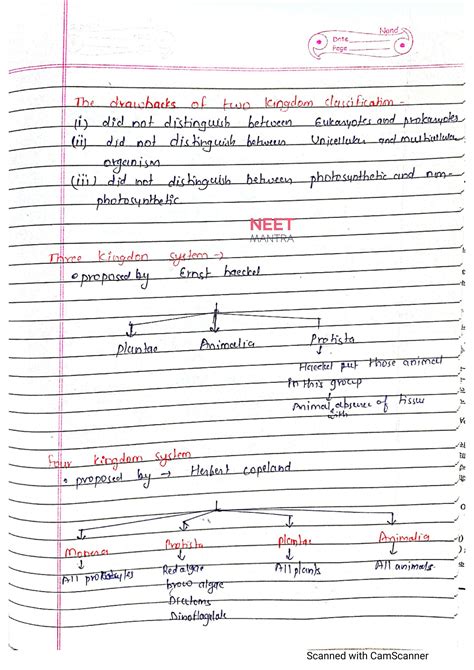 Nand
Date
Page
The drawbacks of two kingdom classification -
(i) did not distinguish between Eukaryotes and prokaryotes
(ii) did not distinguish between Unicellular and multicellular
organism
(iii) did not distinguish between photosynthetic and non-
photosynthetic
NEET
MANTRA
Three kingdom system →
• proposed by Ernst haeckel
Plantae Animalia Protista
Haeckel put those animal
In this group
Animal absence of tissus
with
Four kingdom system
• proposed by → Herbert copeland
Monera Protista plantae Animalia
All prokaryotes Red algae All plants All animals.
brow algae
Diatoms
Dinoflagelate
Scanned with CamScanner